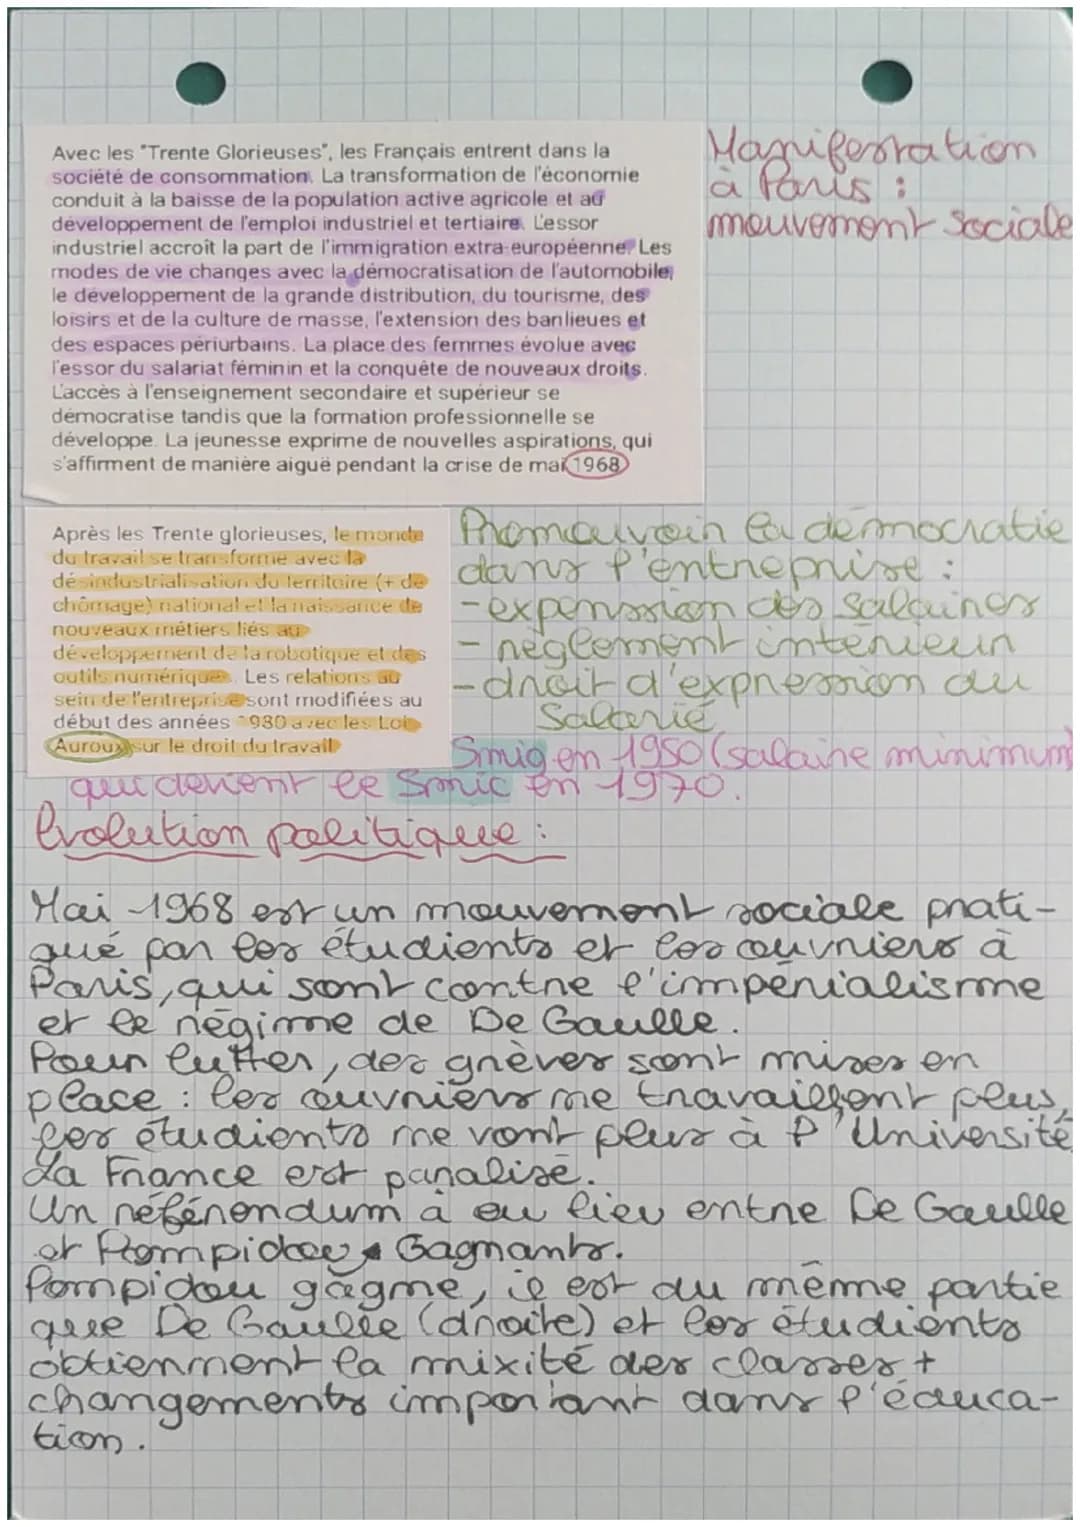 Avec les "Trente Glorieuses", les Français entrent dans la
société de consommation. La transformation de l'économie
conduit à la baisse de la population active agricole et au
développement de l'emploi industriel et tertiaire. L'essor
industriel accroît la part de l'immigration extra-européenne. Les
modes de vie changes avec la démocratisation de l'automobile,
le développement de la grande distribution, du tourisme, des
loisirs et de la culture de masse, l'extension des banlieues et
des espaces périurbains. La place des femmes évolue avec
l'essor du salariat féminin et la conquête de nouveaux droits.
L'accès à l'enseignement secondaire et supérieur se
démocratise tandis que la formation professionnelle se
développe. La jeunesse exprime de nouvelles aspirations, qui
s'affirment de manière aiguë pendant la crise de mai 1968
Manifestation
à Paris :
mouvement sociale
Après les Trente glorieuses, le monde
du travail se transforme avec la
désindustrialisation du territoire (+ de
chômage) national et la naissance de
nouveaux métiers liés au
développement de la robotique et des
outils numériques. Les relations au
sein de l'entreprise sont modifiées au
début des années 1980 avec les Loi
Auroux sur le droit du travail
Promouvoir la démocratie
dans l'entreprise :
- expenssion des salaires
- règlement intérieur
- droit d'expression du
Salarié
Smig en 1950 (salaire minimum)
qui devient le Smic en 1970.
Evolution politique :
Mai 1968 est un mouvement sociale prati-
qué par les étudients et les ouvriers à
Paris, qui sont contre l'impérialisme
et le régime de De Gaulle.
Pour lutter, des grèves sont mises en
place : les ouvriers ne travaillent plus,
les étudients ne vont plus à l'Université.
La France est paralisé.
Un référendum à eu lieu entre De Gaulle
et Pompidou Gagnants.
Pompidou gagne, il est du même partie
que De Gaulle (droite) et les étudients
obtiennent la mixité des classes +
changements important dans l'éduca-
tion.